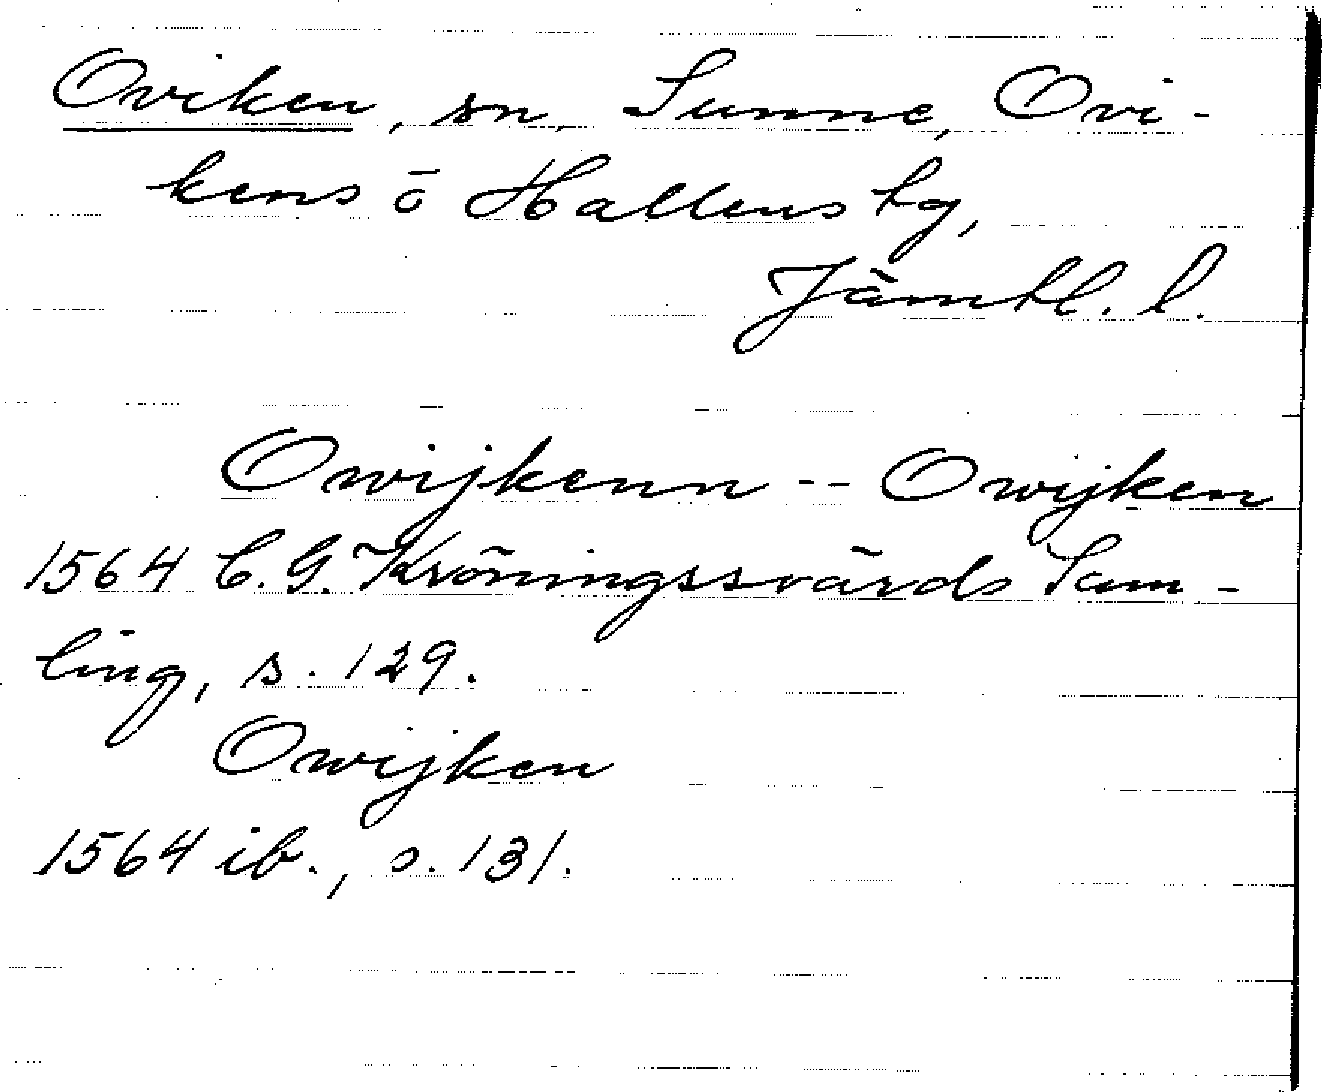 Oviken, sn, Sunne, Ovi-
kens ö Hallens tg,
Jämtl. l.
Owijkenn -- Owijken
1564 C. G. Kröningssvärds Sam-
ling, s. 129.
Owijken
1564 ib., s. 131.